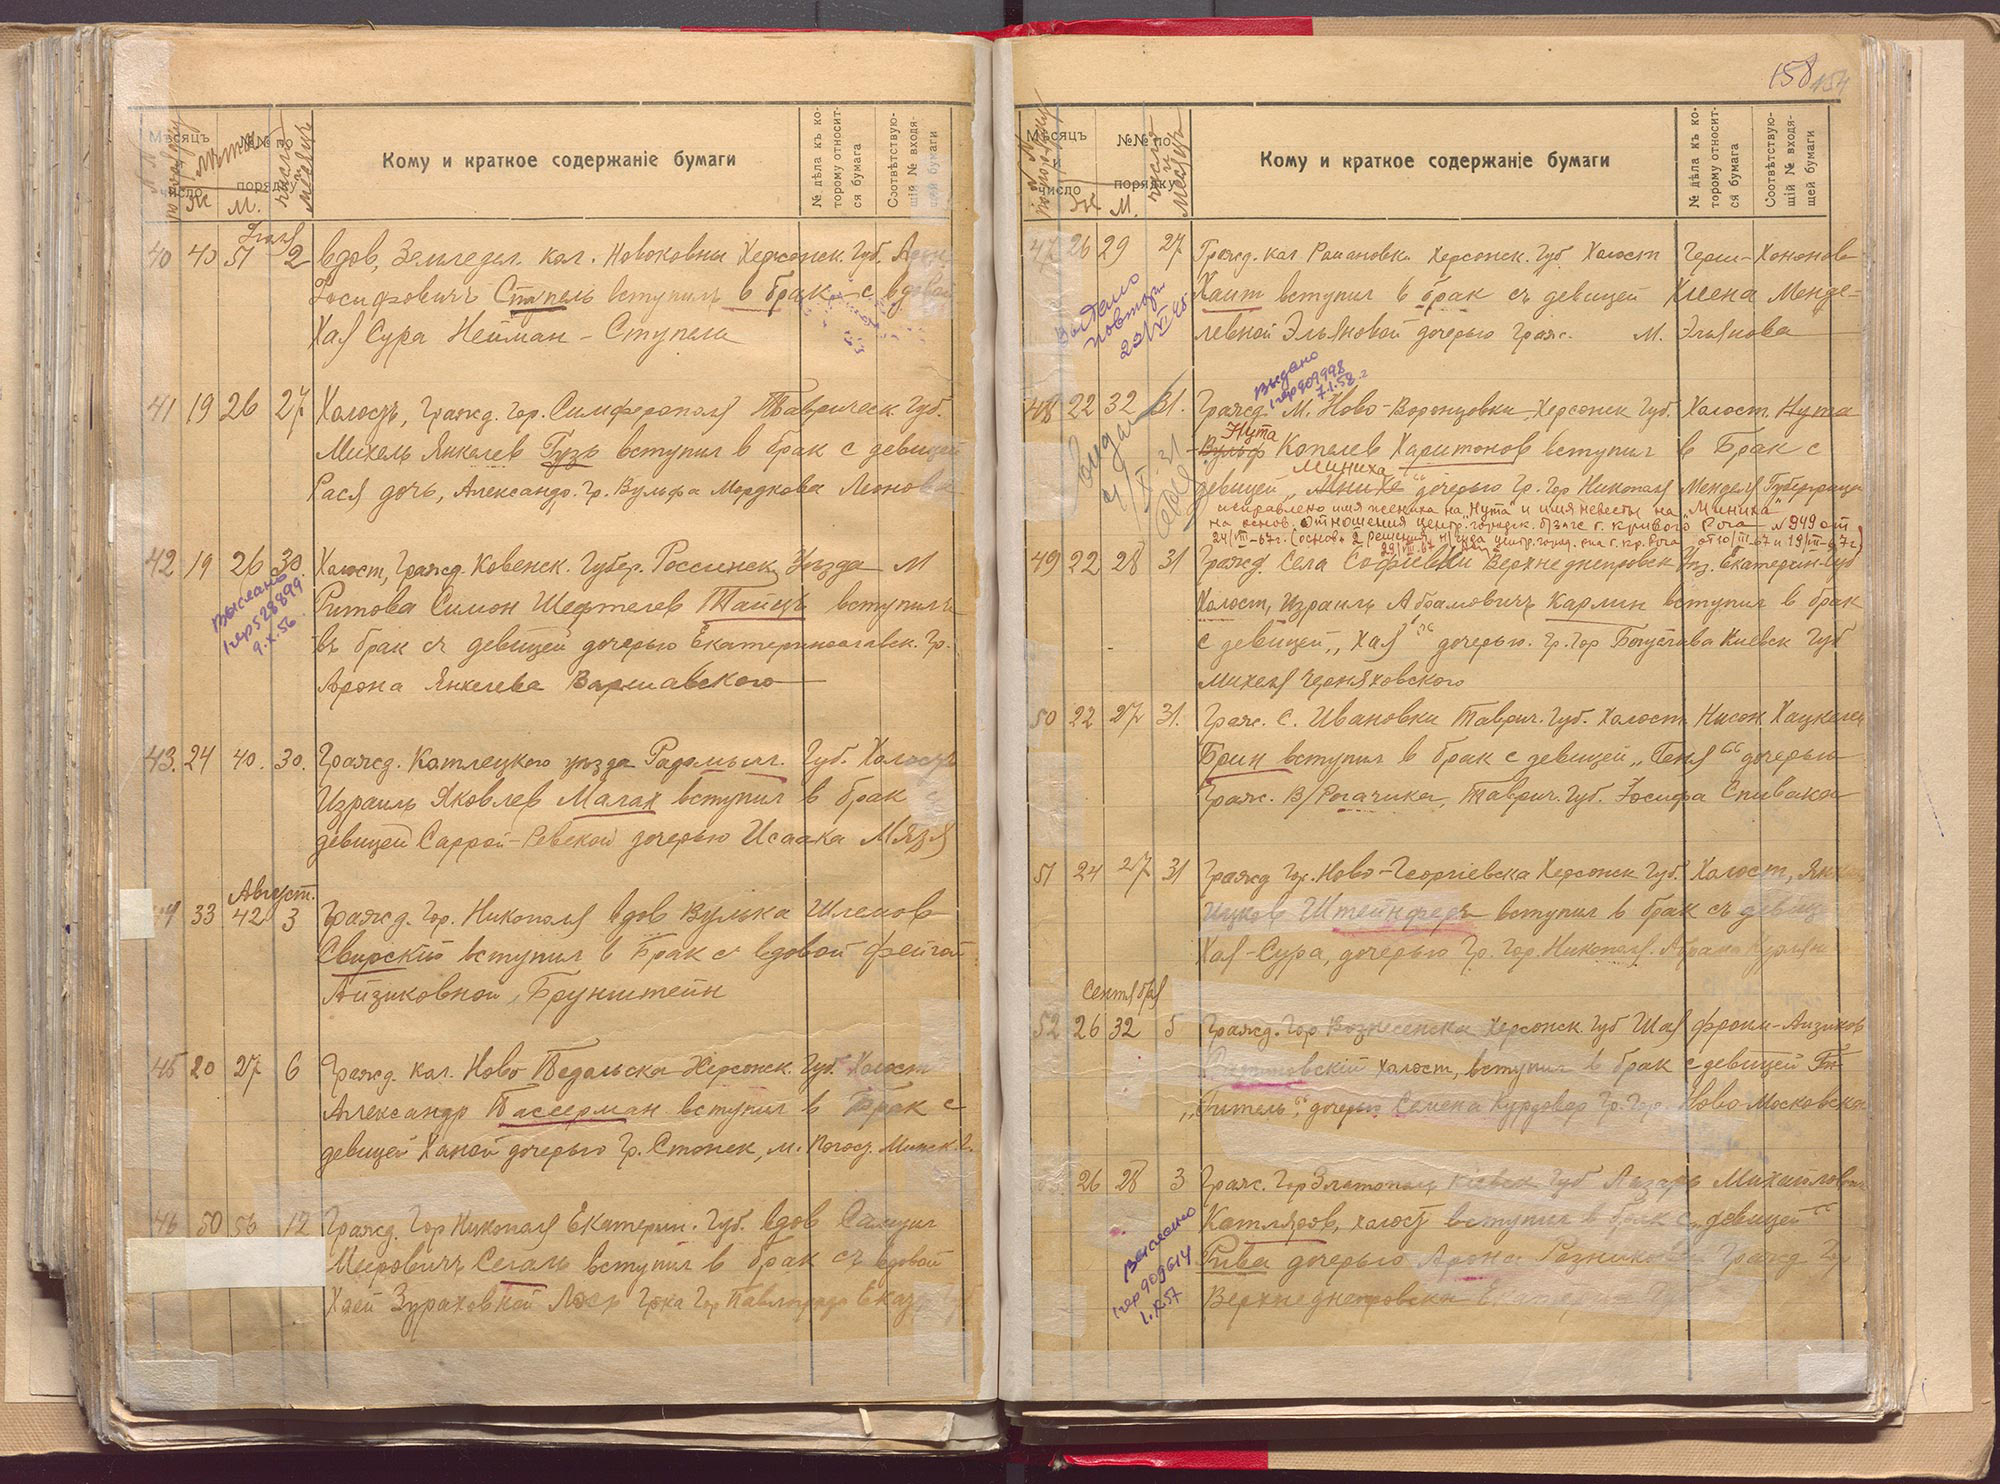 Мѣсяцъ
число
Ж
№№ по
порядку
М.
Кому и краткое содержаніе бумаги
№ дѣла къ ко-
торому относит-
ся бумага
Соотвѣтствую-
щій № входя-
щей бумаги
40 40 51 2 вдов, Земледел. кол. Новоковны Херсонск. Губ.
Іосифовичъ Ступель вступилъ в брак с вдовой
Хая Сура Нейман - Ступели
41 19 26 27 Холостъ, Гражд. Гор. Симферополя Таврическ. Губ.
Михель Янкелев Гузь вступил в брак с девицей
Рася дочь, Александр. Гр. Вульфа Мордкова Леонова
42 19 26 30. Холост, Гражд. Ковенск. Губер. Россиенск Уъзда М
Ритова Симон Шефтелев Тайцъ вступилъ
въ брак съ девицей дочерью Екатеринославск. Гр.
Арона Янкелева Варшавского
Выслано
1чер528899
9.X.56
43. 24 40. 30. Гражд. уъзда Радомысл. Губ. Холостъ
Израиль Яковлев Малах вступил в брак с
девицей Саррой-Ревекой дочерью Исаака Мязя
Август.
44 33 42 3 Гражд. Гор. Никополя вдов Вулька Шлемов
Свирскій вступил в Брак с вдовой Фейгой
Айзиковной, Брунштейн
45 20 27 6 Гражд. Кол. Ново Херсонск. Губ. Холост
Александр Вассерман вступил в Брак с
девицей Ханой дочерью Гр. Столек, м. Погост. Минск. Г.
46 50 56 12 Гражд. Гор Никополя Екатерин. Губ. вдов Самуил
Меерович Сегаль вступил в брак съ вдовой
Хаей Зураховной Гор Павлограда Екат
158
154
Мѣсяцъ
число
Ж
№№ по
порядку
М.
число и месяцъ
Кому и краткое содержаніе бумаги
№ дѣла къ ко-
торому относит-
ся бумага
Соотвѣтствую-
щій № входя-
щей бумаги
47 26 29 27 Гражд. кол Романовки Херсонск. Губ. Холост Герш-Хононов
Хаит вступил в брак съ девицей Хиена Менде-
левной Эльяновой дочерью Граж. М. Эльянова
Выдано
повторн
22/VI 45.
Выдано
1чер909998
7.I.58.г
48 22 32 31. Гражд. М. Ново-Воронцовки Херсонск Губ. Холост. Нута
Нута
Вульф Копелев Харитонов вступил в Брак с
Миниха
девицей „Мнихе“ дочерью Гр. Гор Никополя Менделя
исправлено имя жениха на „Нута“ и имя невесты на „Миниха“
на основ. отношения центр. городск. бзагс г. Кривого Рога № 949 от
49 22 28 31 Гражд. Села Софіевки Верхнеднепровск Уъз. Екатерин. Губ
Холост, Израиль Абрамовичъ Карлин вступил в брак
с девицей „Хая“ дочерью. Гр. Гор Богуслава Киевск Губ
Михеля Черняховского
50 22 27 31. Граж. с. Ивановки Таврич. Губ. Холост Нисон Хацкелев
Брин вступил в брак с девицей „Геня“ дочерью
Граж. В/Рогачика, Таврич. Губ. Іосифа Спивака
51 24 27 31 Гражд Гор. Ново-Георгіевска Херсонск Губ. Холост,
Ицков Штейнферъ вступил в брак съ девиц
Хая-Сура, дочерью Гр. Гор. Никополя. Абрама
Сентября
52 26 32 5 Гражд. Гор Вознесенска Херсонск Губ Шая Фроим-Айзиков
холост, вступил в брак с девицей
„Гитель“, дочерью Семена Гр. Гор. Новомосковска
26 28 3 Граж. Гор Златополь Кіевск Губ Лазарь Михайлович
Котляров, холост вступил в брак с „девицей“
Рива дочерью Арона Резникова Гражд Гор
Верхнеднепровска
Выслано
1чер909614
1.X.57